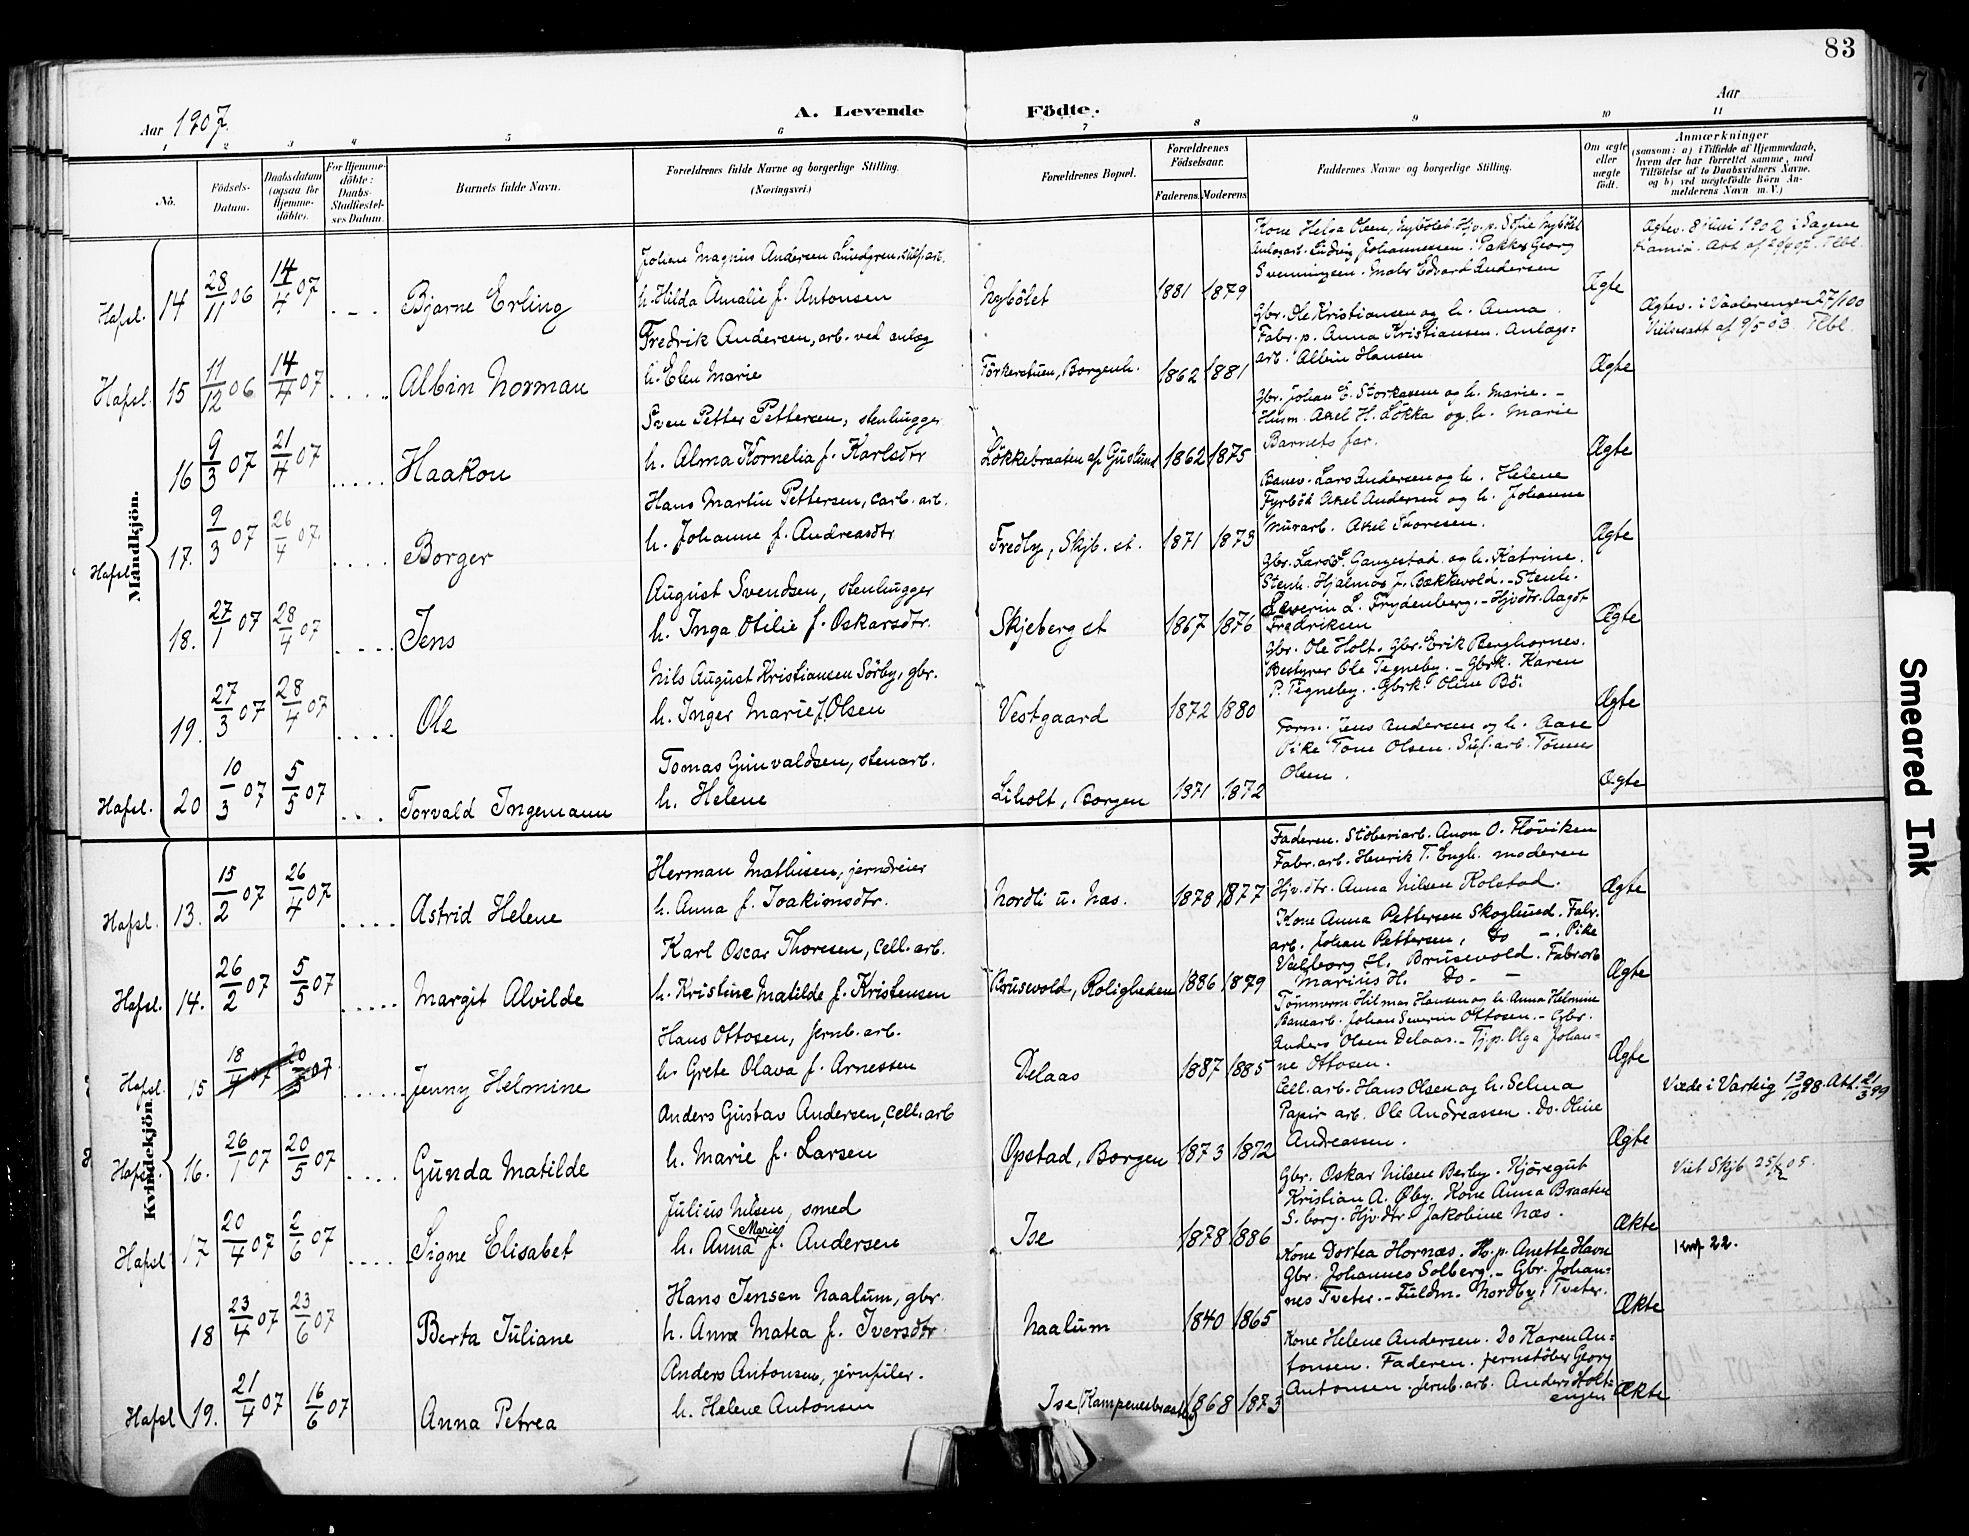 83
Aar 1907.
A. Levende Födte.
Aar
1 2 3 4 5 6 7 8 9 10 11
No.
Födsels-Datum.
Daabsdatum (ogsaa for Hjemme-döbte).
For Hjemme-döbte: Daabs-Stadfæstel-ses Datum.
Barnets fulde Navn.
Forældrenes fulde Navne og borgerlige Stilling. (Næringsvei.)
Forældrenes Bopæl.
Forældrenes Födselsaar.
Faderens. Moderens.
Faddernes Navne og borgerlige Stilling.
Om ægte eller uægte födt.
Anmærkninger
(saasom: a) i Tilfælde af Hjemmedaab, hvem der har forrettet samme, med Tilföielse af to Daabsvidners Navne. og b) ved uægtefödte Börn An-melderens Navn m. V.)
Mandkjön.
Hafsl. 14 28/11 06 14/4 07 Bjarne Erling
Johan Magnus Andersen Lundgren,
h. Hilda Amalie f. Antonsen
Nybölet 1881 1879
Kone Helga Olsen, Nybölet. Hjv.p. Sofie Nybölet
Anlagsarb. Ludvig Johannessen. Pakker Georg
Svenningsen. Maler Edvard Andersen
Ægte
Ægtev. 8 juni 1902 i Sagene
Hafsl. 15 11/12 06 14/4 07 Albin Norman
Fredrik Andersen, arb. ved anlæg
h. Elen Marie
Törkerstuen, Borgenh. 1862 1881
Gbr. Ole Kristiansen og h. Anna.
Fabr. p. Anna Kristiansen. Anlægs=
arb. Albin Hansen
Ægte
Ægtev. i Vaalerengen 27/ 00
af 9/5 03. Tlbl.
Hafsl. 16 9/3 07 21/4 07 Haakon
Sven Petter Pettersen, stenhugger
h. Alma Kornelia f. Karlsdtr
Lökkebraaten af Guslund 1862 1875
Gbr. Johan E. Storkaasen og h. Marie. -
Husm. Axel H. Lökka og h. Marie
Barnets far.
Ægte
Hafsl. 17. 9/3 07 26/4 07. Borger
Hans Martin Pettersen, carb. arb.
h. Johanne f. Andreasdtr
Fredly, Skjb. st. 1871 1873
Banev. Lars Andersen og h. Helene
Fyrböt Axel Andersen og h. Johanne
Murarb. Axel Thoresen.
Ægte
18. 27/1 07 28/4 07 Jens
August Svendsen, stenhugger
h. Inga Otilie f. Oskarsdtr.
Skjeberg st 1867 1876
Gbr. Lars L. Gangestad og h. Katrine.
Stenh. Hjalmar J. Bækkevold. - Stenh.
Severin L. Frydenberg. - Hjvdtr. Aagot
Fredriksen
Ægte
19. 27/3 07 28/4 07 Ole
Nils August Kristiansen Sörby, gbr.
h. Inger Marie f. Olsen
Vestgaard 1872 1880
Gbr. Ole Holt. Gbr. Erik Berghornes.
Bestyrer Ole Tegneby. - Gbrk. Karen
P. Tegneby. Gbrk. Oline Bö.
Ægte
Hafsl. 20 10/3 07 5/5 07 Torvald Ingemann
Tomas Gunvaldsen, stenarb.
h. Helene
Liholt, Borgen 1871 1872
Form. Jens Andersen og h. Aase
Pike Tone Olsen. Sulf. arb. Tönnes
Olsen.
Ægte
Kvindekjön.
Hafsl. 13. 15/2 07 26/4 07 Astrid Helene
Herman Mathisen, jerndreier
h. Anna f. Joakimsdtr.
Nordli u. Næs. 1878 1877
Faderen. Stöberiarb. Anon O. Flöviken
Fabr. arb. Henrik T. Engh. moderen
Hjv.dtr. Anna Nilsen Rolstad.
Ægte
Hafsl. 14. 26/2 07 5/5 07 Margit Alvilde
Karl Oscar Thoresen, cell. arb.
h. Kristine Matilde f. Kristensen
Brusevold, Roligheden 1886 1879
Kone Anna Pettersen Skoglund. Fabr.
arb. Johan Pettersen, Do -. Pike
Valborg H. Brusevold. Fabr.arb
Marius H. Do. -
Ægte
Hafsl. 15 18/4 07 20/5 07 Jenny Helmine
Hans Ottosen, Jernb. arb.
h. Grete Olava f. Arnessen
Delaas 1887 1885
Tömmerm. Hilmar Hansen og h. Anna Helmine
Banearb. Johan Severin Ottosen. - Gbr.
Anders Olsen Delaas. - Tj.p. Olga Johan=
ne Ottosen.
Ægte
Hafsl. 16. 26/1 07 20/5 07 Gunda Matilde
Anders Gustav Andersen, cell. arb
h. Marie f. Larsen
Opstad, Borgen 1873 1872
Cell. arb. Hans Olsen og h. Selma
Papir arb. Ole Andreassen. Do. Oline
Andreassen.
Ægte
Viede i Varteig 13/10 98. Att. 21/3 99
Hafsl 17 20/4 07 2/6 07 Signe Elisabet
Julius Nilsen, smed
h. Anna Marie f. Andersen
Ise 1878 1886
Gbr. Oskar Nilsen Berby. Kjöregut
Kristian A. Øby. Kone Anna Braaten
S. borg. Hjv.dtr. Jakobine Næs.
Ækte
Viet Skjb. 25/ 05.
18 23/4 07 23/6 07 Berta Juliane
Hans Jensen Naalum, gbr.
h. Anne Matea f. Iversdtr.
Naalum 1840 1865
Kone Dortea Hornæs. H.p. Anette Havn
Gbr. Johannes Solberg. - Gbr. Johan=
nes Tveter. - Fuldm. Nordby, Tveter.
Ækte
22.
Hafsl 19. 21/4 07 16/6 07 Anna Petrea
Anders Antonsen, jernfiler.
h. Helene Antonsen
Ise (Kampenesbraaten) 1868 1873
Kone Helene Andersen. Do Karen An=
tonsen. Faderen. Jernstöber Georg
Antonsen. Jernb. arb. Anders Holt=
engen
Ækte
Smeared Ink
7